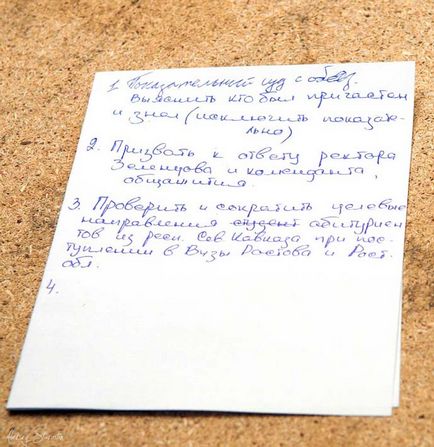 1. Показательный суд с обяз.
Выяснить кто был причастен
и знал (исключить показате-
льно)
2. Призвать к ответу ректора
Зеленцова и коменданта
общажития.
3. Проверить и сократить целевые
направления студент абитуриен
тов из респ. Сев Кавказа при пос-
туплении в Вузы Ростова и Рост.
обл.
4.